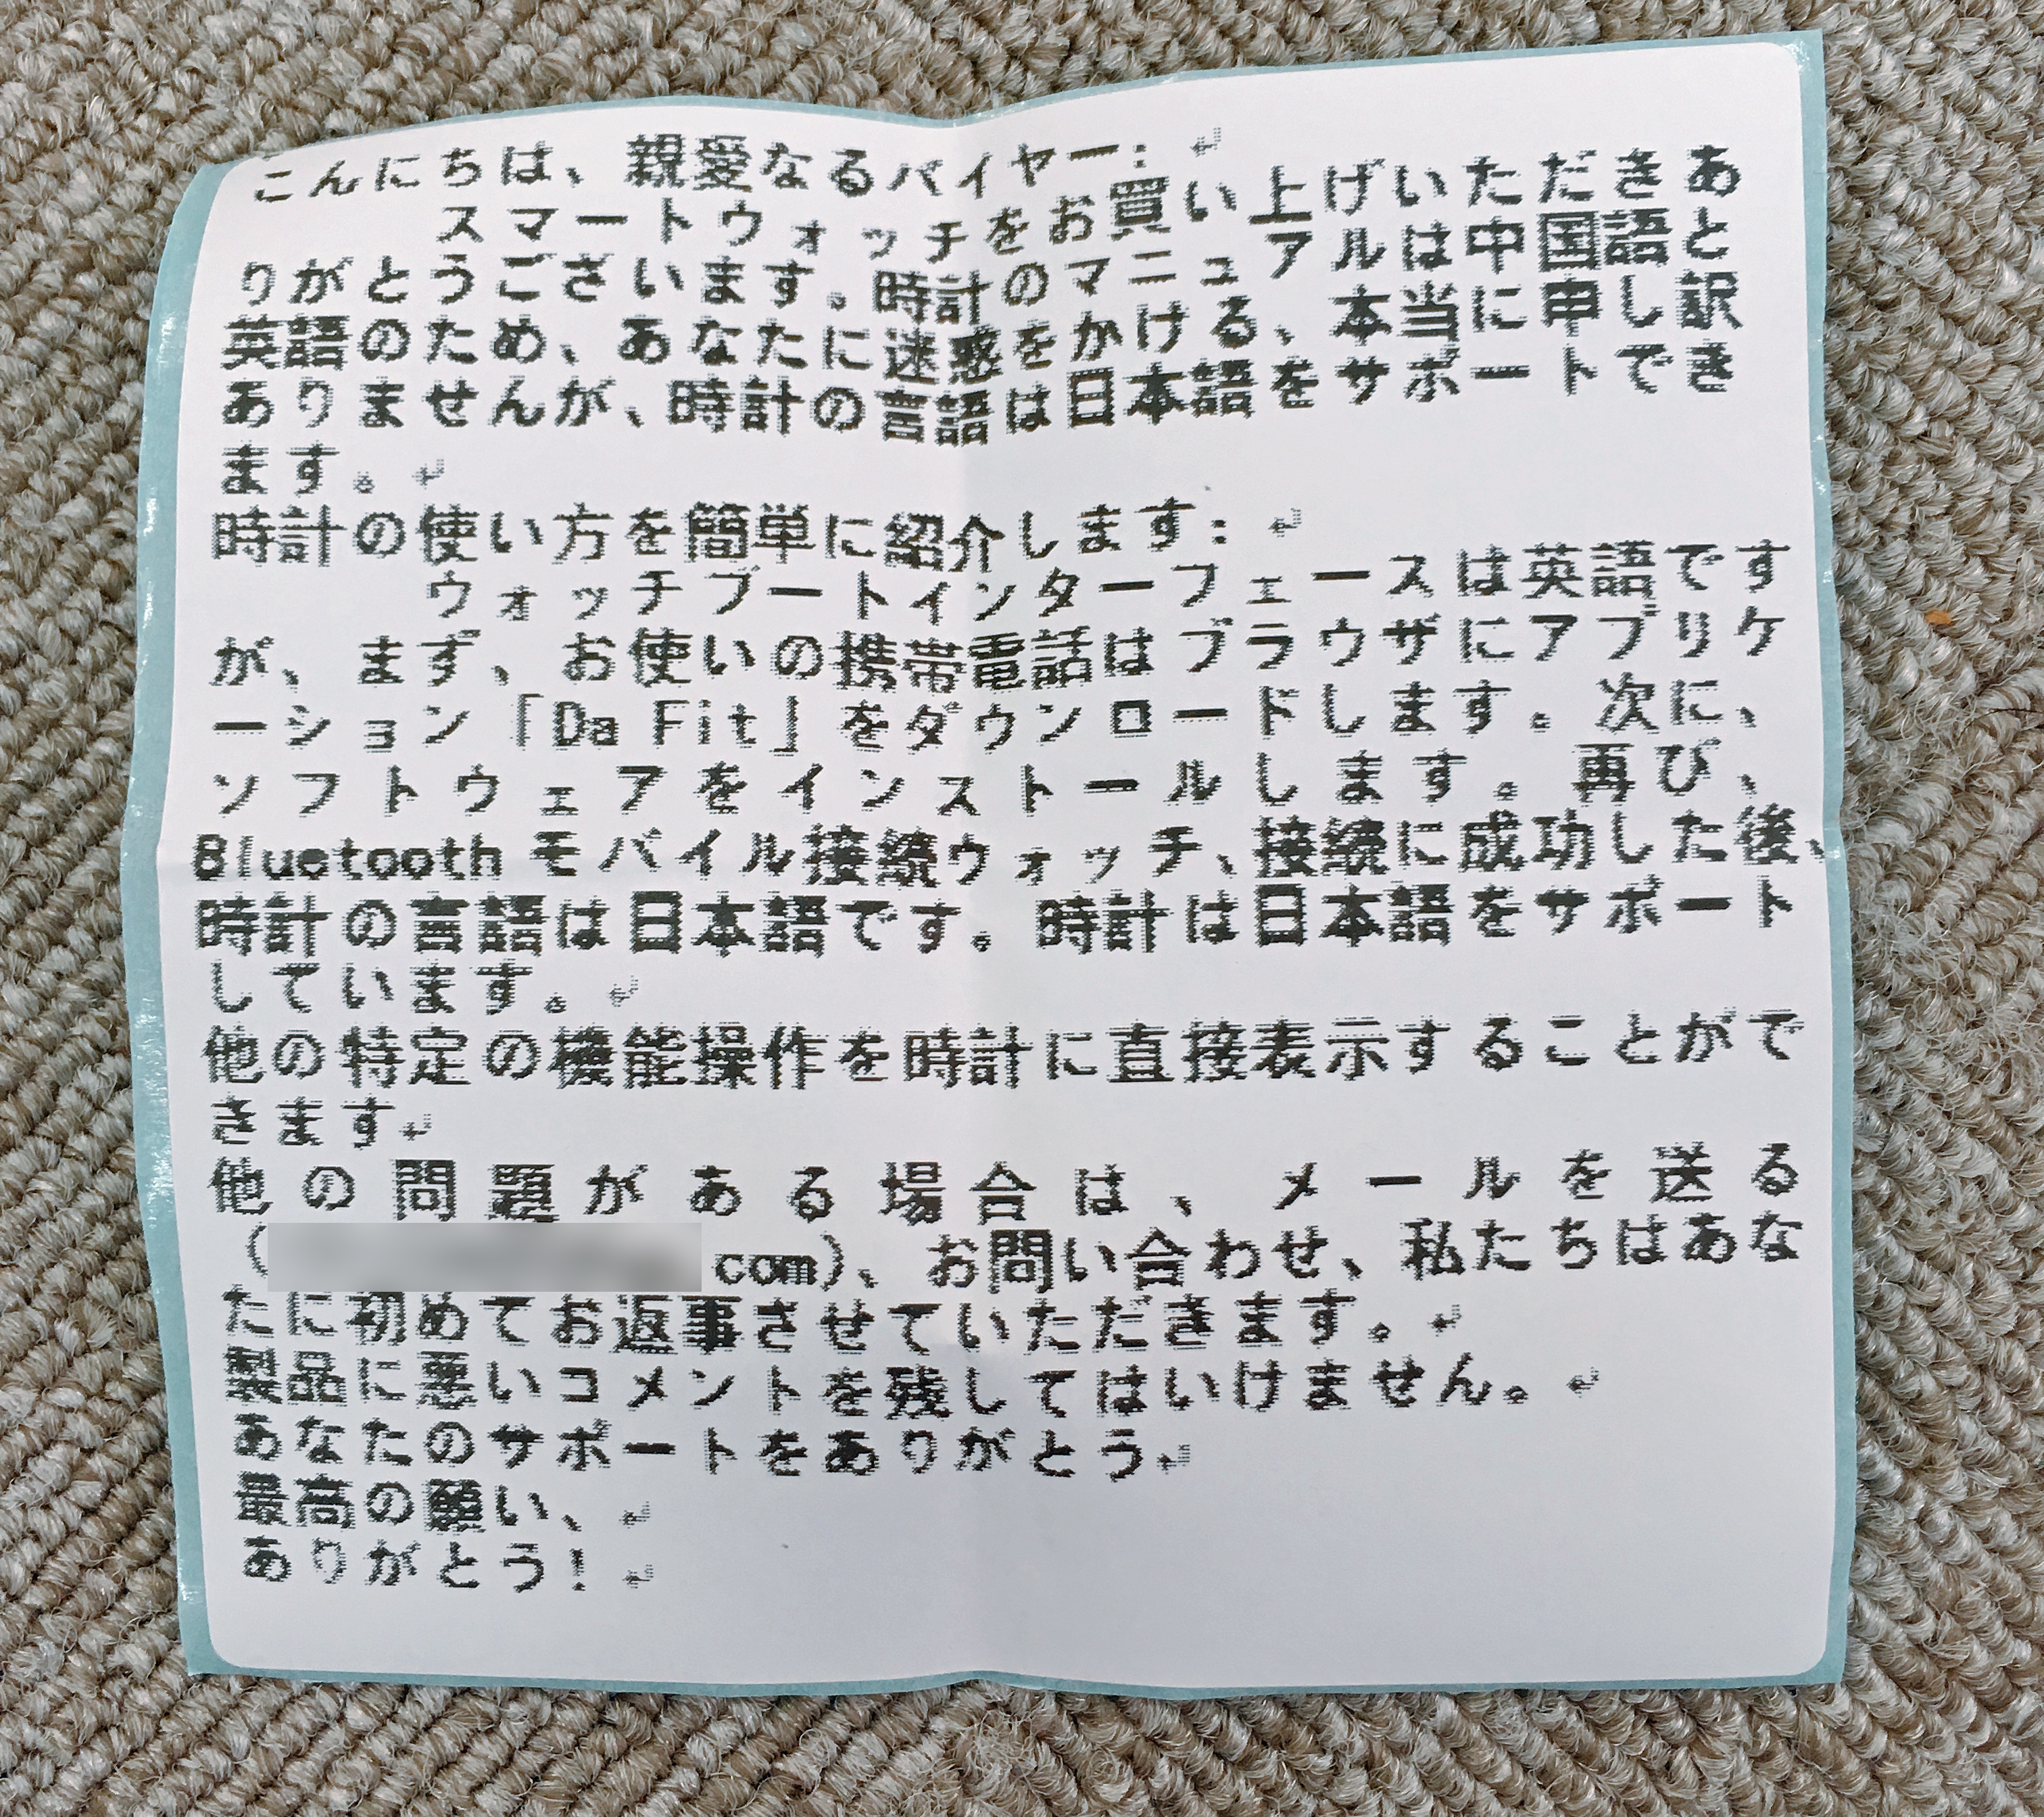 こんにちは、親愛なるバイヤー：↵
スマートウォッチをお買い上げいただきあ
りがとうございます。時計のマニュアルは中国語と
英語のため、あなたに迷惑をかける、本当に申し訳
ありませんが、時計の言語は日本語をサポートでき
ます。↵
時計の使い方を簡単に紹介します：↵
ウォッチブートインターフェースは英語です
が、まず、お使いの携帯電話はブラウザにアプリケ
ーション「Da Fit」をダウンロードします。次に、
ソフトウェアをインストールします。再び、
Bluetooth モバイル接続ウォッチ、接続に成功した後、
時計の言語は日本語です。時計は日本語をサポート
しています。↵
他の特定の機能操作を時計に直接表示することがで
きます↵
他の問題がある場合は、メールを送る
(com)、お問い合わせ、私たちはあな
たに初めてお返事させていただきます。↵
製品に悪いコメントを残してはいけません。↵
あなたのサポートをありがとう。↵
最高の願い、↵
ありがとう！↵